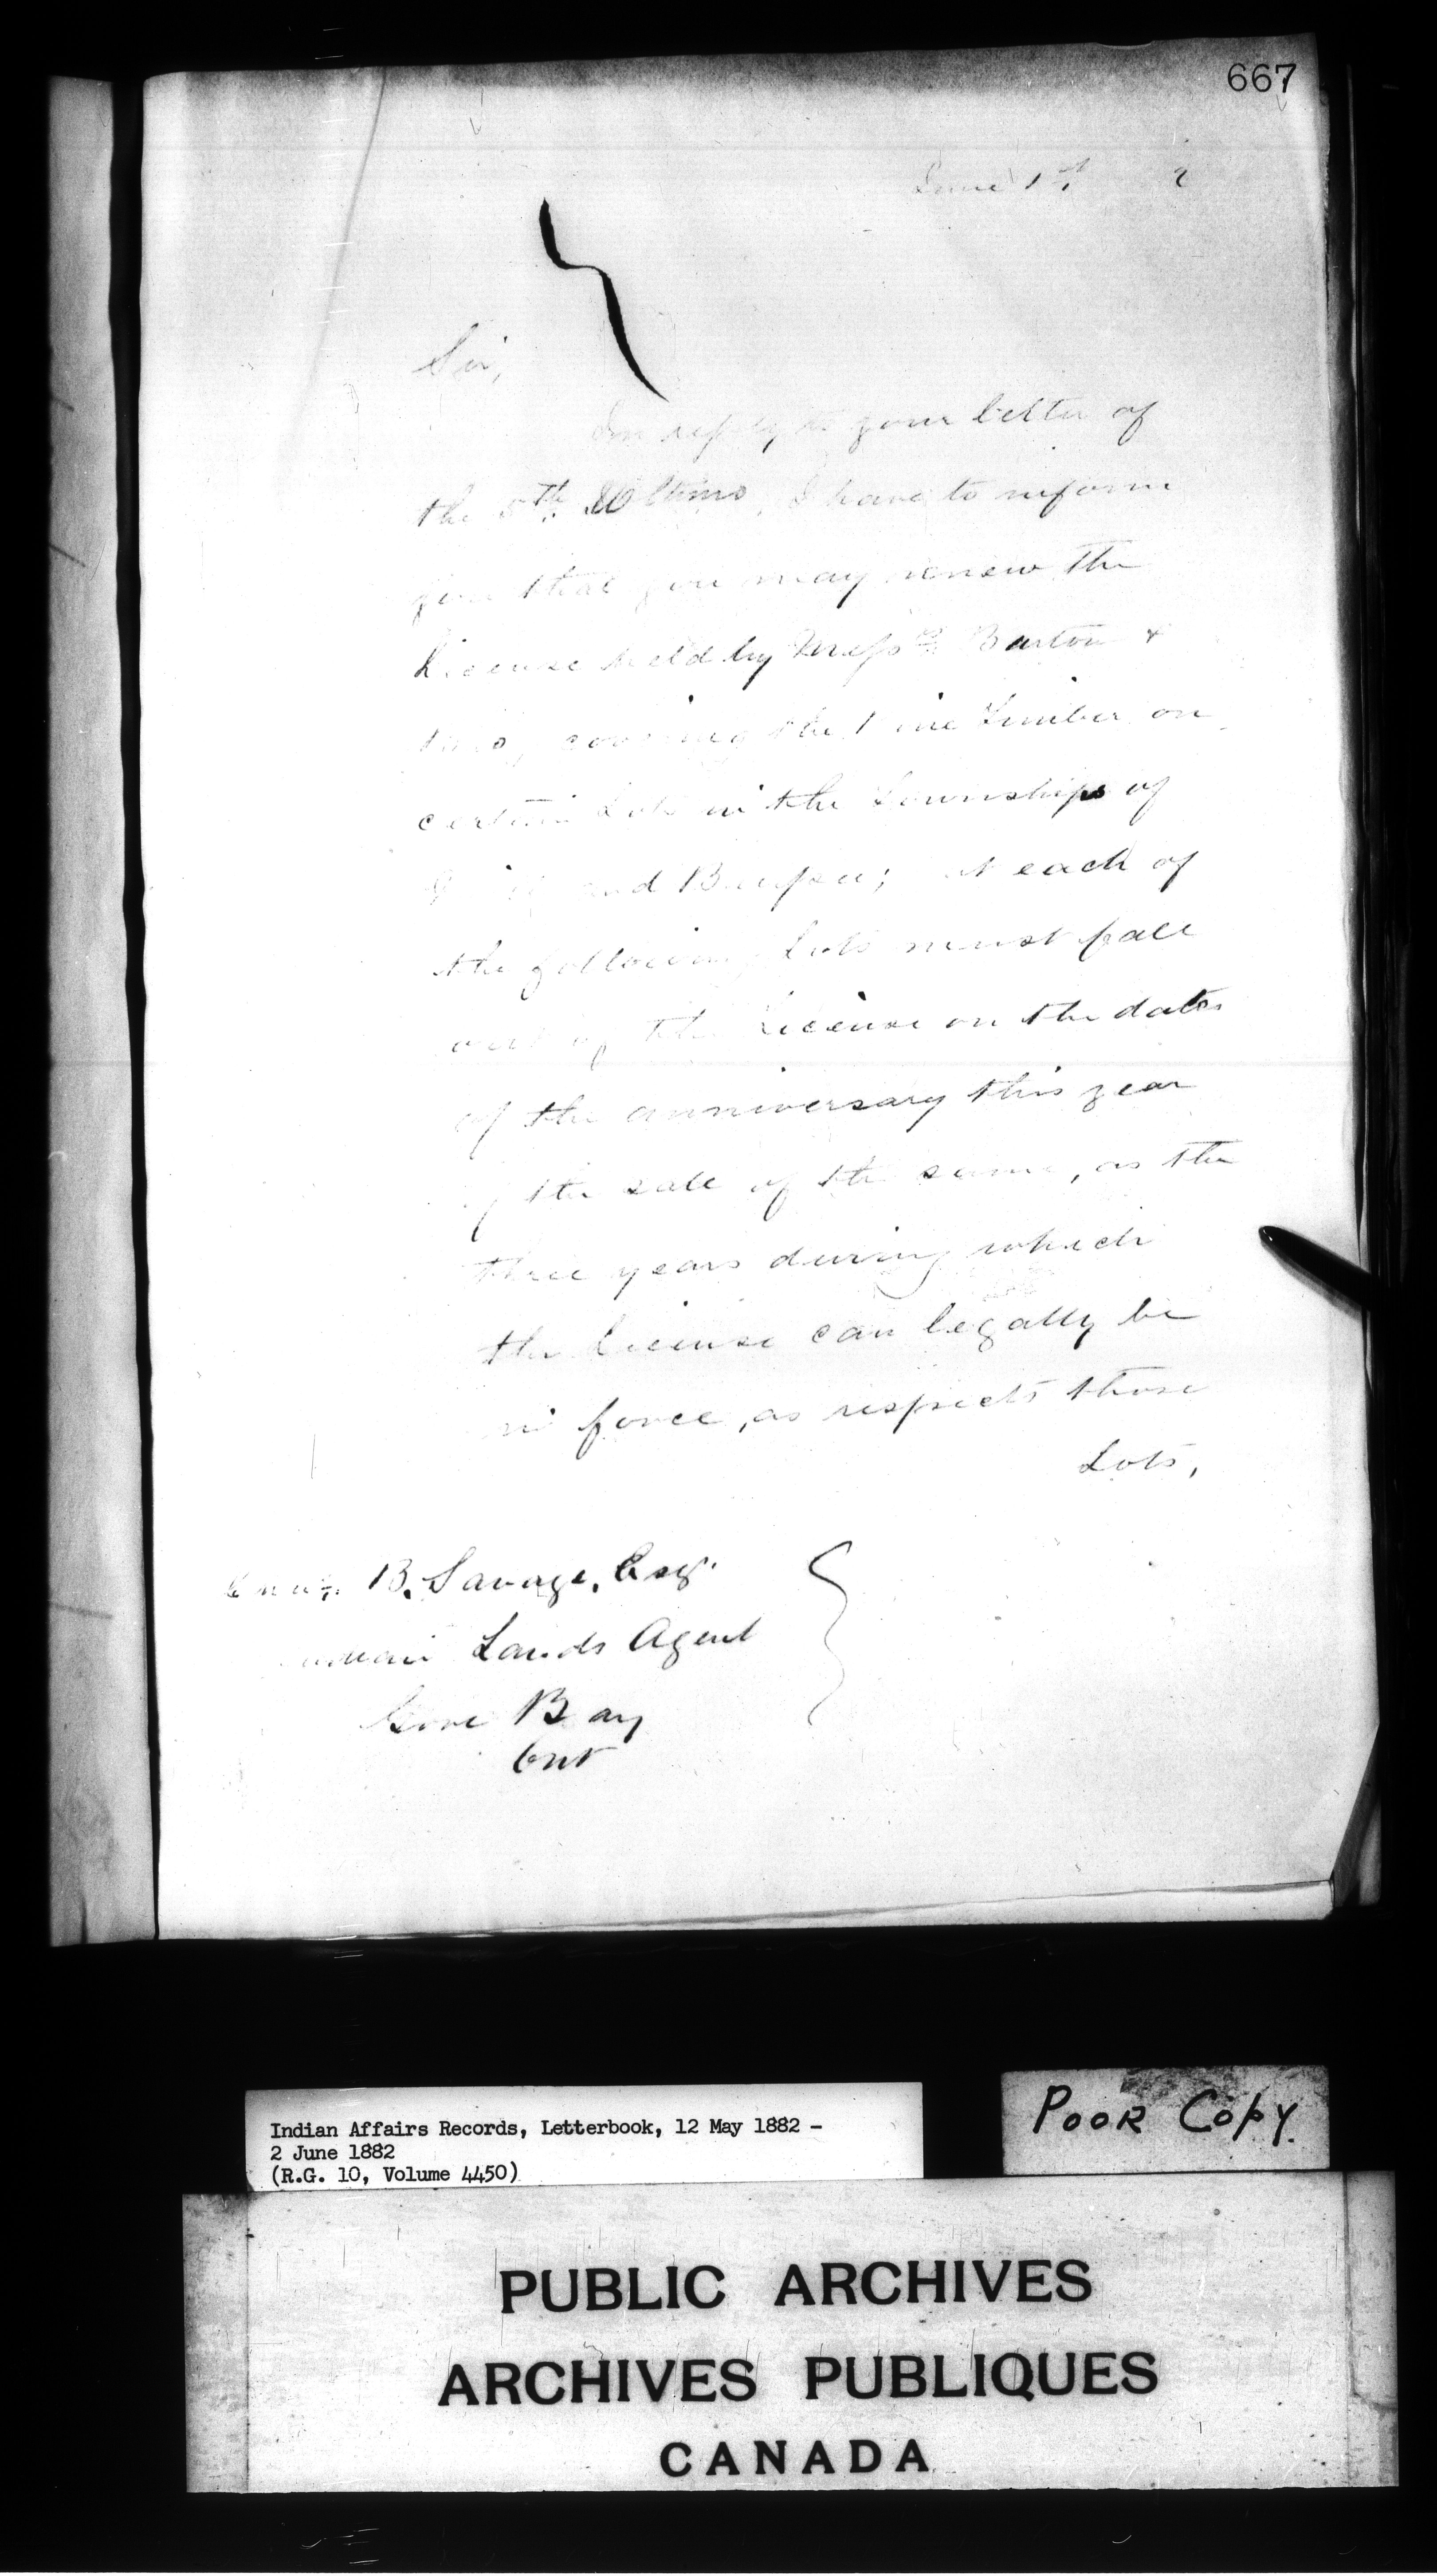 667
June 1st 2
Sir,
In reply to your letter of
the 5th Ultimo, I have to inform
you that you may renew the
License held by Messrs Barton &
Bro, covering the Pine Timber on
certain Lots in the Townships of
and each of
the following Lots must fall
out of the License on the dates
of the anniversary this year
of the sale of the same, as the
three years during which
the License can legally be
in force, as respects those
Lots,
B. Savage, Esqr.
Lands Agent
Gore Bay
Ont
Indian Affairs Records, Letterbook, 12 May 1882 -
2 June 1882
(R.G. 10, Volume 4450)
POOR COPY.
PUBLIC ARCHIVES
ARCHIVES PUBLIQUES
CANADA